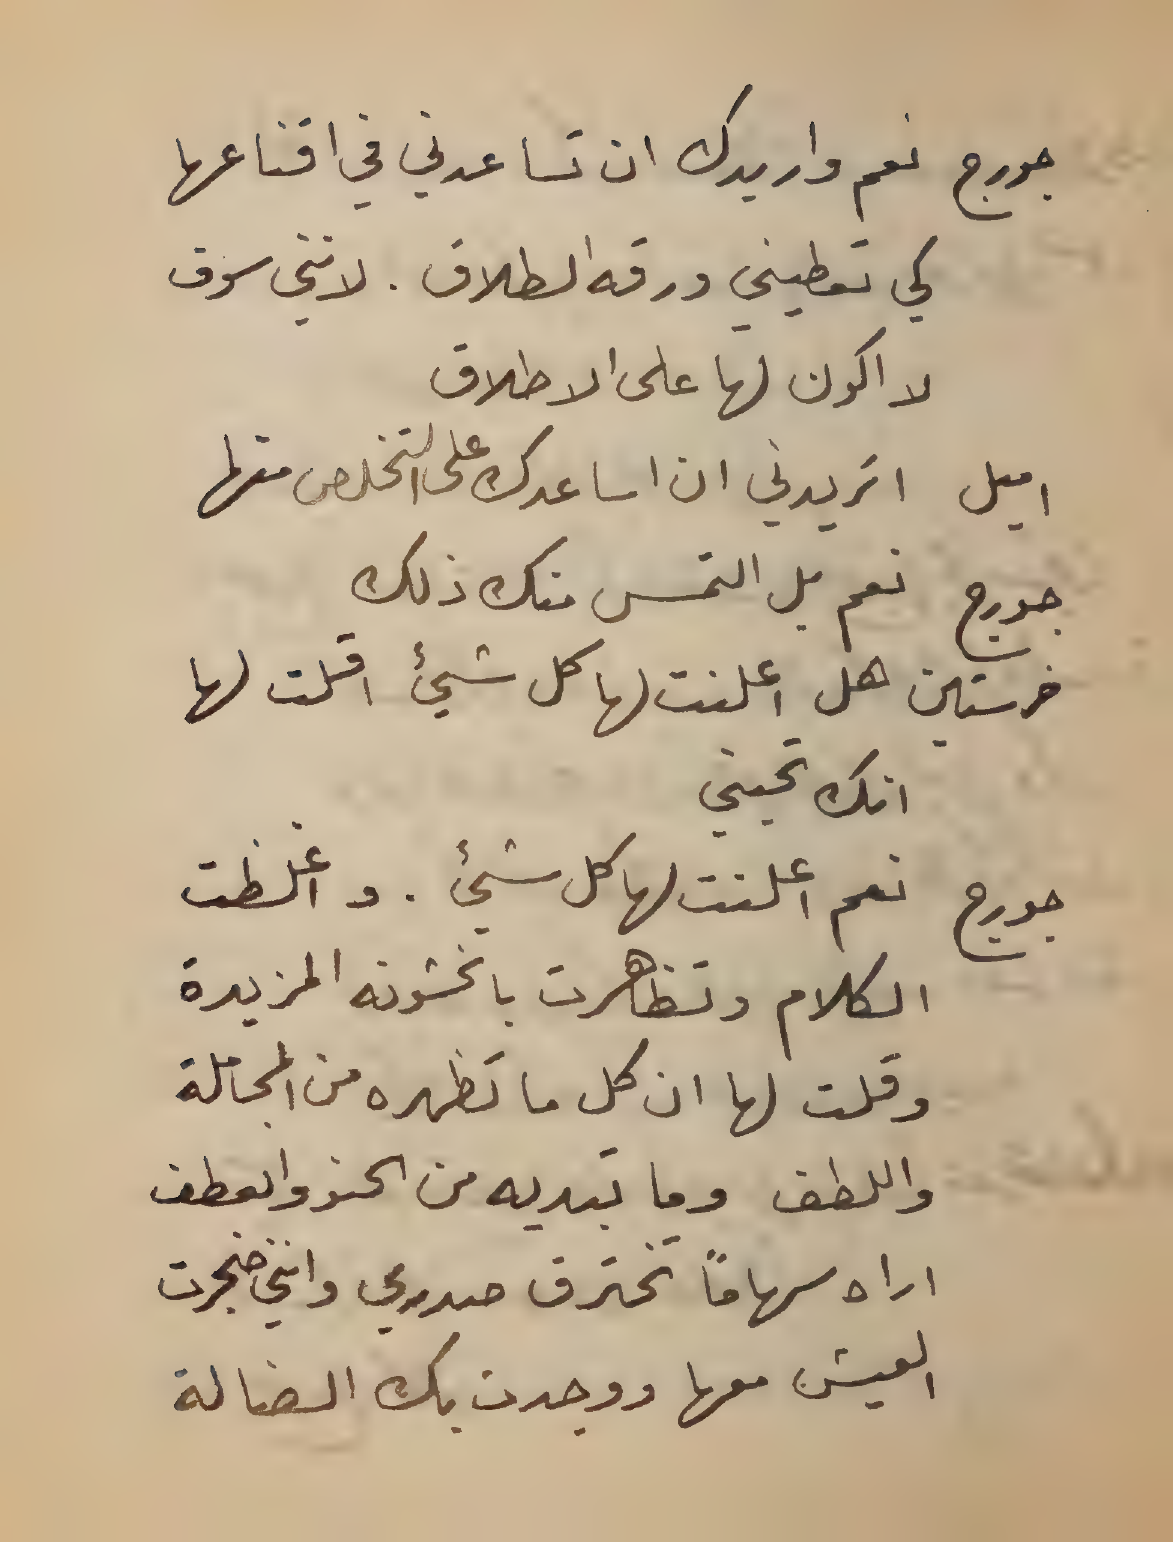 جورج نعم واريدك ان تساعدني في اقناعها
كي تعطيني ورقه الطلاق . لانني سوف
لا اكون لها على الاطلاق
اميل اتريدني ان اساعدك على التخلص منها
جورج نعم بل التمس منك ذلك
خرستين هل اعلنت لها كل شيئ اقلت لها
انك تحبني
جورج نعم اعلنت لها كل شيئ . و اغلظت
الكلام وتظاهرت بالخشونه المزيدة
وقلت لها ان كل ما تظهره من المجاملة
واللطف وما تبديه من الحنو والعطف
اراه سهاماً تخترق صدري وانني ضجرت
العيش معها ووجدت بك الضالة